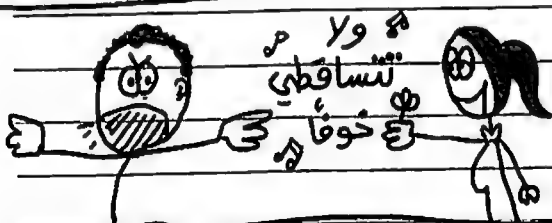 ولا
تتساقطي
خوفًا